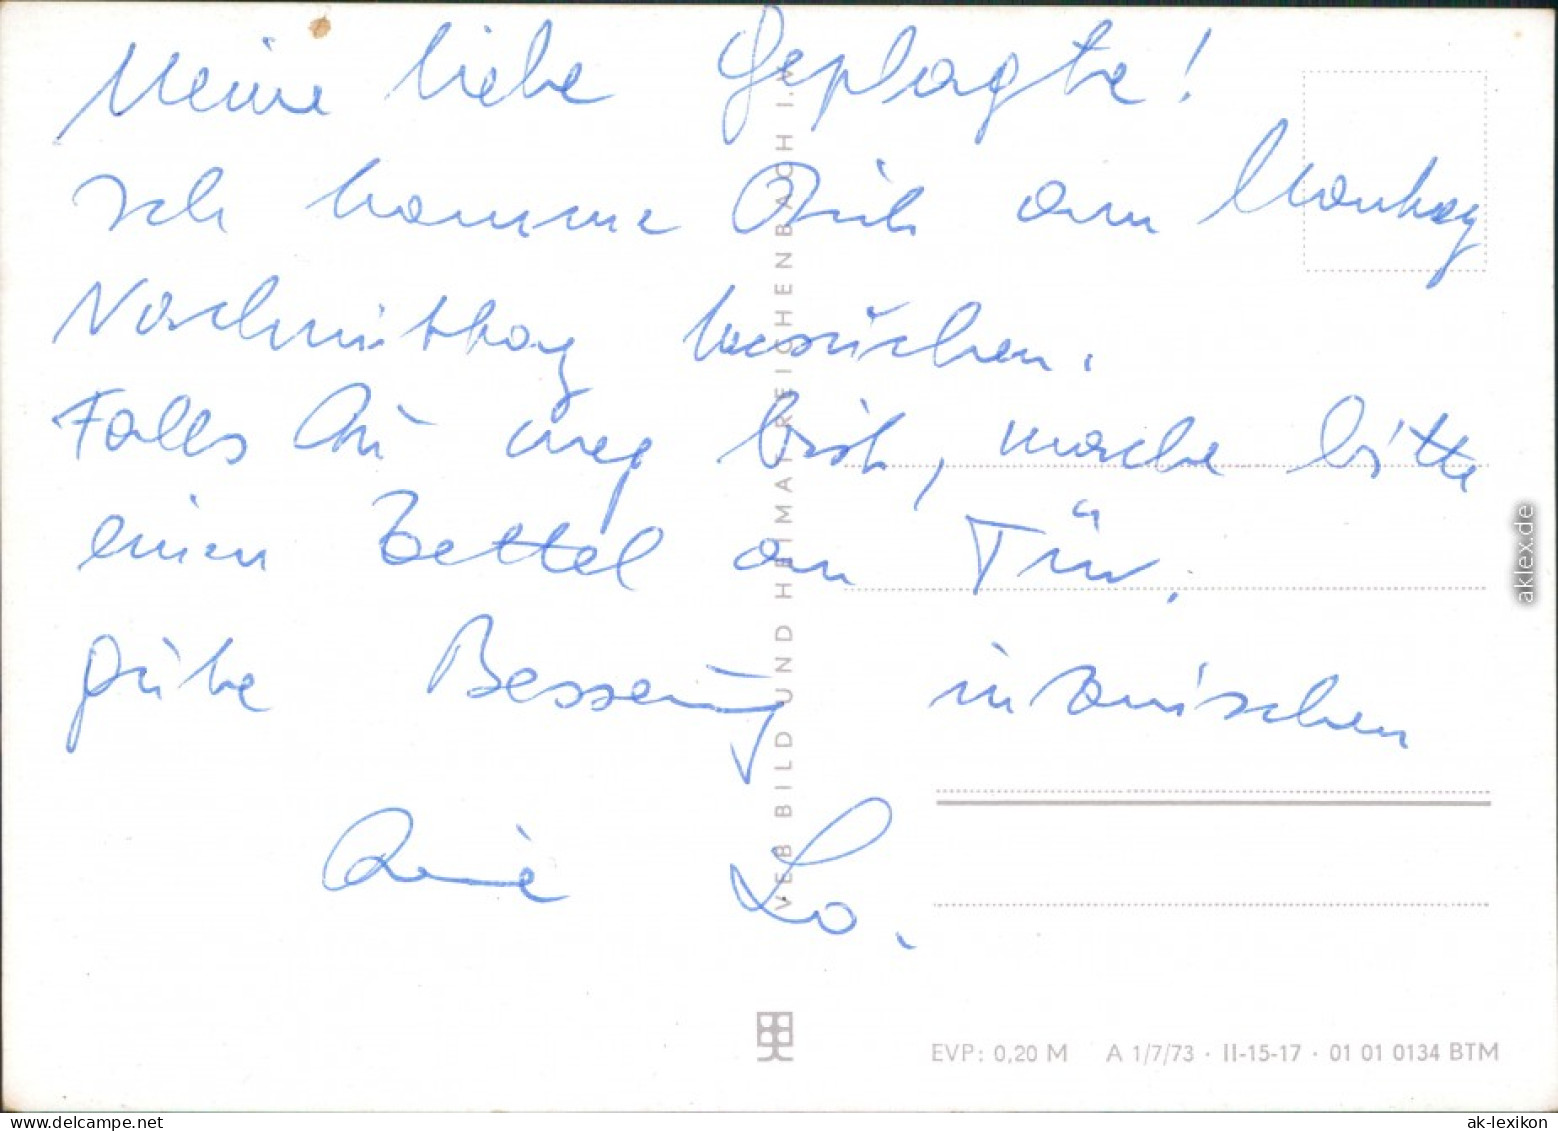 Meine liebe Geplagte!
Ich komme Dich am Montag
Nachmittag besuchen.
Falls Du weg bist, mache bitte
einen Zettel an Tür.
gute Besserung inzwischen
Deine Lo.
VEB BILD UND HEIMAT REICHENBACH I.V.
EVP: 0,20 M A 1/7/73 · II-15-17 · 01 01 0134 BTM
aklex.de
ak-lexikon